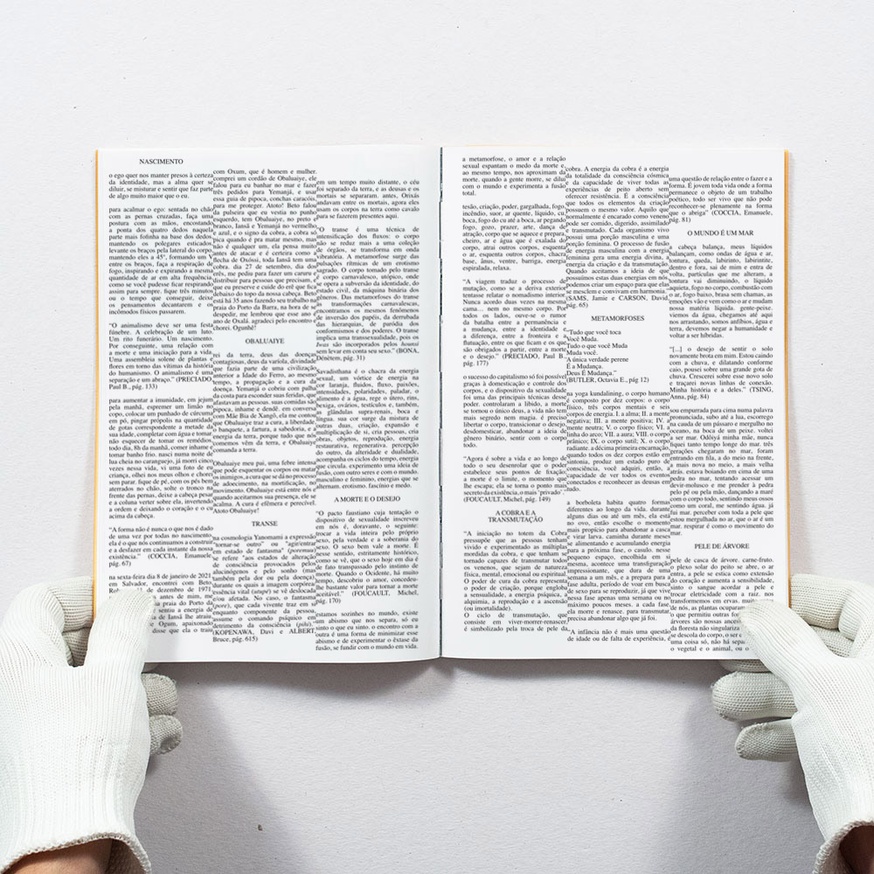 NASCIMENTO
o ego quer nos manter presos à certeza
da identidade, mas a alma quer se
diluir, se misturar e sentir que faz parte
de algo muito maior que o eu.
para acalmar o ego: sentada no chão
com as pernas cruzadas, faça uma
postura com as mãos, encostando
a ponta dos quatro dedos naquela
parte mais fofinha na base dos dedos,
mantendo os polegares esticados.
levante os braços pela lateral do corpo
mantendo eles a 45°, formando um V
entre os braços, faça a respiração de
fogo, inspirando e expirando a mesma
quantidade de ar em alta frequência,
como se você pudesse ficar respirando
assim para sempre. fique três minutos
ou o tempo que conseguir, deixe
os pensamentos decantarem e
incômodos físicos passarem.
"O animalismo deve ser uma festa
fúnebre. A celebração de um luto.
Um rito funerário. Um nascimento.
Por conseguinte, uma relação com
a morte e uma iniciação para a vida.
Uma assembleia solene de plantas e
flores em torno das vítimas da história
do humanismo. O animalismo é uma
separação e um abraço." (PRECIADO,
Paul B., pág. 133)
para aumentar a imunidade, em jejum
pela manhã, espremer um limão no
copo, colocar um punhado de cúrcuma
em pó, pingar própolis na quantidade
de gotas correspondente a metade da
sua idade, completar com água e tomar.
não esquecer de tomar os remédios
todo dia, 8h da manhã, comer inhame e
tomar banho frio. nasci numa noite de
lua cheia no caranguejo, já morri cinco
vezes nessa vida, vi uma foto de eu
criança, olhei nos meus olhos e chorei
sem parar. fique de pé, com os pés bem
aterrados no chão, solte o tronco na
frente das pernas, deixe a cabeça pesar
e a coluna verter sobre ela, invertendo
a ordem e deixando o coração e o cu
acima da cabeça.
"A forma não é nunca o que nos é dado
de uma vez por todas no nascimento,
ela é o que nós continuamos a construir
e a desfazer em cada instante da nossa
existência." (COCCIA, Emanuele,
pág. 67)
na sexta-feira dia 8 de janeiro de 2021,
em Salvador, encontrei com Beto
de dezembro de 1971
antes de mim.
praia do Porto da
senti a energia de
de Iansã lhe atrair.
Ogum, apaixonado
disse que ela o traiu
com Oxum, que é homem e mulher.
comprei um cordão de Obaluaiye, ele
falou para eu banhar no mar e fazer
três pedidos para Yemanjá, e usar
essa guia de pipoca, conchas caracóis
para me proteger. Atotô! Beto falou
da pulseira que eu vestia no punho
esquerdo, tem Obaluaiye, no preto e
branco, Iansã e Yemanjá no vermelho
e azul, e o signo da cobra, a cobra só
pica quando é pra matar mesmo, mas
não é qualquer um, ela pensa muito
antes de atacar e é certeira como a
flecha de Oxóssi, toda Iansã tem uma
cobra. dia 27 de setembro, dia dos
três, me pediu para fazer um caruru e
distribuir para pessoas que precisam, e
que eu preserve e cuide do erê que fica
debaixo do topo da nossa cabeça. Beto
está há 35 anos fazendo seu trabalho na
praia do Porto da Barra, na hora de se
despedir, me lembrou que esse ano é
ano de Oxalá. agradeci pelo encontro e
chorei. Ogunhê!
OBALUAIYE
rei da terra, deus das doenças
contagiosas, deus da varíola, divindade
que fazia parte de uma civilização
anterior à Idade do Ferro, ao mesmo
tempo, a propagação e a cura da
doença. Yemanjá o cobriu com palha
da costa para esconder suas feridas, que
afastavam as pessoas. suas comidas são
pipoca, inhame e dendê. em conversa
com Mãe Bia de Xangô, ela me contou
que Obaluaiye traz a cura, a liberdade,
o banquete, a fartura, a sabedoria, e a
energia da terra, porque tudo que nós
comemos vêm da terra, e Obaluaiye
comanda a terra.
Obaluaiye meu pai, uma febre intensa
que pode esquentar os corpos ou matar
os inimigos, a cura que se dá no processo
de adoecimento, na mortificação, no
movimento. Obaluaiye está entre nós e
quando aceitarmos sua presença, ele se
acalma. A cura é efêmera e perecível.
Atoto Obaluaiye!
TRANSE
na cosmologia Yanomami a expressão
"tornar-se outro" ou "agir/entrar
em estado de fantasma"
se refere "aos estados de alteração
de consciência provocados pelos
alucinógenos e pelo sonho (mas
também pela dor ou pela doença)
durante os quais a imagem corporal/
essência vital (utupë) se vê deslocada
e/ou afetada. No caso, o fantasma
(pore), que cada vivente traz em si
enquanto componente da pessoa,
assume o comando psíquico em
detrimento da consciência (pihi)."
(KOPENAWA, Davi e ALBERT,
Bruce, pág. 615)
em um tempo muito distante, o céu
foi separado da terra, e as deusas e os
mortais se separaram. antes, Orixás
andavam entre os mortais, agora eles
usam os corpos na terra como cavalo
para se fazerem presentes aqui.
O transe é uma técnica de
intensificação dos fluxos: o corpo
não se redez mais a uma coleção
de órgãos, se transforma em onda
vibratória. A metamorfose surge das
pulsações rítmicas de um erotismo
sagrado. O corpo tomado pelo transe
é corpo carnavalesco, utópico, onde
se opera a subversão da identidade, do
estado civil, da máquina binária dos
gêneros. Das metamorfoses do transe
às transformações carnavalescas,
encontramos os mesmos fenômenos
de inversão dos papéis, da derrubada
das hierarquias, de paródia dos
conformismos e dos poderes. O transe
implica uma transexualidade, pois os
loas são incorporados pelos hounsi
sem levar em conta seu sexo." (BONA,
Dénètem, pág. 31)
Svadisthana é o chakra da energia
sexual, um vórtice de energia na
cor laranja, fluidos, fluxo, paixões,
intensidades, polaridades, paladar, o
alimento é a água, rege o útero, rins,
bexiga, ovários, testículos e, também,
as glândulas supra-renais, boca e
língua. sua cor surge da mistura de
outras duas, criação, expansão e
multiplicação de si, cria pessoas, cria
obras, objetos, reprodução, energia
restaurativa, regenerativa. percepção
do outro, da alteridade e dualidade,
acompanha os ciclos do tempo, energia
que circula. experimento uma ideia de
fusão, com outro seres e com o mundo.
masculino e feminino, energias que se
alternam. erotismo, fascínio e medo.
A MORTE E O DESEJO
"O pacto faustiano cuja tentação o
dispositivo de sexualidade inscreveu
em nós é, doravante, o seguinte:
trocar a vida inteira pelo próprio
sexo, pela verdade e a soberania do
sexo. O sexo bem vale a morte. É
nesse sentido, estritamente histórico,
como se vê, que o sexo hoje em dia é
de fato transpassado pelo instinto de
morte. Quando o Ocidente, há muito
tempo, descobriu o amor, concedeu-
lhe bastante valor para tornar a morte
aceitável." (FOUCAULT, Michel,
pág. 170)
estamos sozinhes no mundo, existe
um abismo que nos separa, só eu
sinto o que eu sinto. o encontro com a
outra é uma forma de minimizar esse
abismo e de experimentar o êxtase da
fusão, se fundir com o mundo em vida.
a metamorfose, o amor e a relação
sexual espantam o medo da morte e,
ao mesmo tempo, nos aproximam da
morte. quando a gente morre, se dilui
com o mundo e experimenta a fusão
total.
tesão, criação, poder, gargalhada, fogo,
incêndio, suor, ar quente, líquido, cu,
boca, fogo do cu até a boca, ar pegando
fogo, gozo, prazer, arte, dança de
atração, corpo que se aquece e propaga
cheiro, ar e água que é exalada do
corpo, atrai outros corpos, esquenta
o ar, esquenta outros corpos, chacra
base, ânus, ventre, barriga, energia
espiralada, relaxa.
"A viagem traduz o processo da
mutação, como se a deriva externa
tentasse relatar o nomadismo interior.
Nunca acordo duas vezes na mesma
cama… nem no mesmo corpo. Por
todos os lados, ouve-se o rumor
da batalha entre a permanência e
a mudança, entre a identidade e
a diferença, entre a fronteira e a
flutuação, entre os que ficam e os que
são obrigados a partir, entre a morte
e o desejo." (PRECIADO, Paul B.,
pág. 177)
o sucesso do capitalismo só foi possível
graças à domesticação e controle dos
corpos, e o dispositivo da sexualidade
foi uma das principais técnicas desse
poder. controlaram a libido, a morte
se tornou o único deus, a vida não tem
mais segredo nem magia. é preciso
libertar o corpo, transicionar o desejo,
desdomesticar, abandonar a ideia de
gênero binário, sentir com o corpo
todo.
"Agora é sobre a vida e ao longo de
todo o seu desenrolar que o poder
estabelece seus pontos de fixação;
a morte é o limite, o momento que
lhe escapa; ela se torna o ponto mais
secreto da existência, o mais 'privado'."
(FOUCAULT, Michel, pág. 149)
A COBRA E A
TRANSMUTAÇÃO
"A iniciação no totem da Cobra
pressupõe que as pessoas tenham
vivido e experimentado as múltiplas
mordidas da cobra, e que tenham se
tornado capazes de transmutar todos
os venenos, que sejam de natureza
física, mental, emocional ou espiritual.
O poder de cura da cobra representa
o poder de criação, porque engloba
a sexualidade, a energia psíquica, a
alquimia, a reprodução e a ascensão
(ou imortalidade).
O ciclo de transmutação, que
consiste em viver-morrer-renascer,
é simbolizado pela troca de pele da
cobra. A energia da cobra é a energia
da totalidade da consciência cósmica
e da capacidade de viver todas as
experiências de peito aberto sem
oferecer resistência. É a consciência
de que todos os elementos da criação
possuem o mesmo valor. Aquilo que
normalmente é encarado como veneno
pode ser comido, digerido, assimilado
e transmutado. Cada organismo vivo
possui uma porção masculina e uma
porção feminina. O processo de fusão
da energia masculina com a energia
feminina gera uma energia divina, a
energia da criação e da transmutação.
Quando aceitamos a ideia de que
possuímos estas duas energias em nós
podemos criar um espaço para que elas
se mesclem e convivam em harmonia."
(SAMS, Jamie e CARSON, David,
pág. 65)
METAMORFOSES
"Tudo que você toca
Você Muda.
Tudo o que você Muda
Muda você.
A única verdade perene
É a Mudança.
Deus É Mudança."
(BUTLER, Octavia E., pág 12)
na yoga kundaliney, o corpo humano
é composto por dez corpos: o corpo
físico, três corpos mentais e seis
corpos de energia. I. a alma; II. a mente
negativa; III. a mente positiva; IV. a
mente neutra; V. o corpo físico; VI. a
linha do arco; VII. a aura; VIII. o corpo
prânico; IX. o corpo sutil; X. o corpo
radiante. a décima primeira encarnação,
quando todos os dez corpos estão em
sintonia, produz um estado puro de
consciência, você adquiri, então, a
capacidade de ver todos os eventos
conectados e reconhecer as deusas em
tudo.
a borboleta habita quatro formas
diferentes ao longo da vida, durante
alguns dias ou até um mês, ela está
no ovo, então escolhe o momento
mais propício para abandonar a casca
e virar larva. caminha durante meses
se alimentando e acumulando energia
para a próxima fase, o casulo. nesse
pequeno espaço, encolhida em si
mesma, acontece uma transfiguração
impressionante, que dura de uma
semana a um mês, e a prepara para a
fase adulta, período de voar em busca
de sexo para se reproduzir, já que vive
nessa fase apenas uma semana ou no
máximo poucos meses. a cada fase,
ela morre e renasce. para transmutar
precisa abandonar algo que já foi.
"A infância não é mais uma questão
de idade ou de falta de experiência, é
uma questão de relação entre o fazer e a
forma. É jovem toda vida onde a forma
permanece o objeto de um trabalho
poético, todo ser vivo que não pode
reconhecer-se plenamente na forma
que o abriga" (COCCIA, Emanuele,
pág. 81)
O MUNDO É UM MAR
a cabeça balança, meus líquidos
balançam, como ondas de água e ar,
tontura, queda, labirinto, labirintite,
dentro e fora, sai de mim e entra de
volta, partículas que me alteram, a
tontura vai diminuindo, o líquido
aquieta, fogo no corpo, combustão com
o ar, fogo baixo, brasa sem chamas, as
emoções vão e vem como o ar e mudam
nossa matéria líquida. gente-peixe.
viemos da água, chegamos até aqui
nos arrastando, somos anfíbios, água e
terra, devemos negar a humanidade e
voltar a ser híbridas.
"[...] o desejo de sentir o solo
novamente brota em mim. Estou caindo
com a chuva, e dilatando conforme
caio, pousei sobre uma grande gota de
chuva. Crescerei sobre esse novo solo
e traçarei novas linhas de conexão.
Minha história é a deles." (TSING,
Anna, pág. 84)
sou empurrada para cima numa palavra
pronunciada, subo até a lua, escorrego
na cauda de um pássaro e mergulho no
oceano, na boca de um peixe. voltei
a ser mar. Odóyá minha mãe, nunca
fiquei tanto tempo longe do mar. três
gerações chegaram no mar, foram
entrando em fila, a do meio na frente,
a mais nova no meio, a mais velha
atrás. estava boiando em cima de uma
pedra no mar, tentando acessar um
devir-molusco e me prender à pedra
pelo pé ou pela mão, dançando a maré
com o corpo todo, sentindo meus ossos
como um coral, me sentindo água, já
sou mar. perceber com toda a pele que
estou mergulhada no ar, que o ar é um
mar. respirar é como o movimento do
mar.
PELE DE ÁRVORE
pele de casca de árvore. carne-fruto.
o plexo solar do peito se abre, o ar
entra, a pele se estica como extensão
do coração e aumenta a sensibilidade,
sinto o sangue acordar a pele e
trocar eletricidade com a raiz. nos
transformemos em ervas.
de nós, as plantas ocuparam
e que permitiu outras
árvores são nossas
da floresta não singulariza
se descola do corpo, o ser e
uma coisa só, não há
o vegetal e o animal, ou o